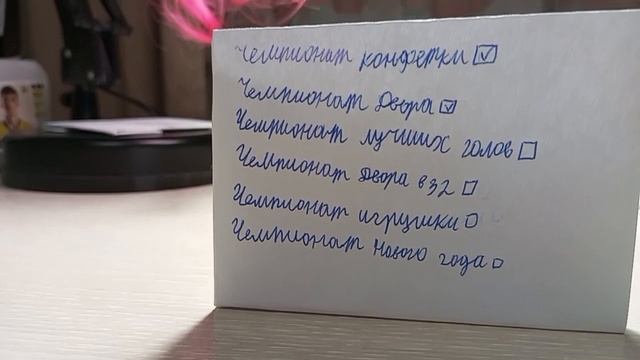 Чемпионат конфетки ☑
Чемпионат двора ☑
Чемпионат лучших голов ☐
Чемпионат двора в 32 ☐
Чемпионат игрушки ☐
Чемпионат нового года ☐